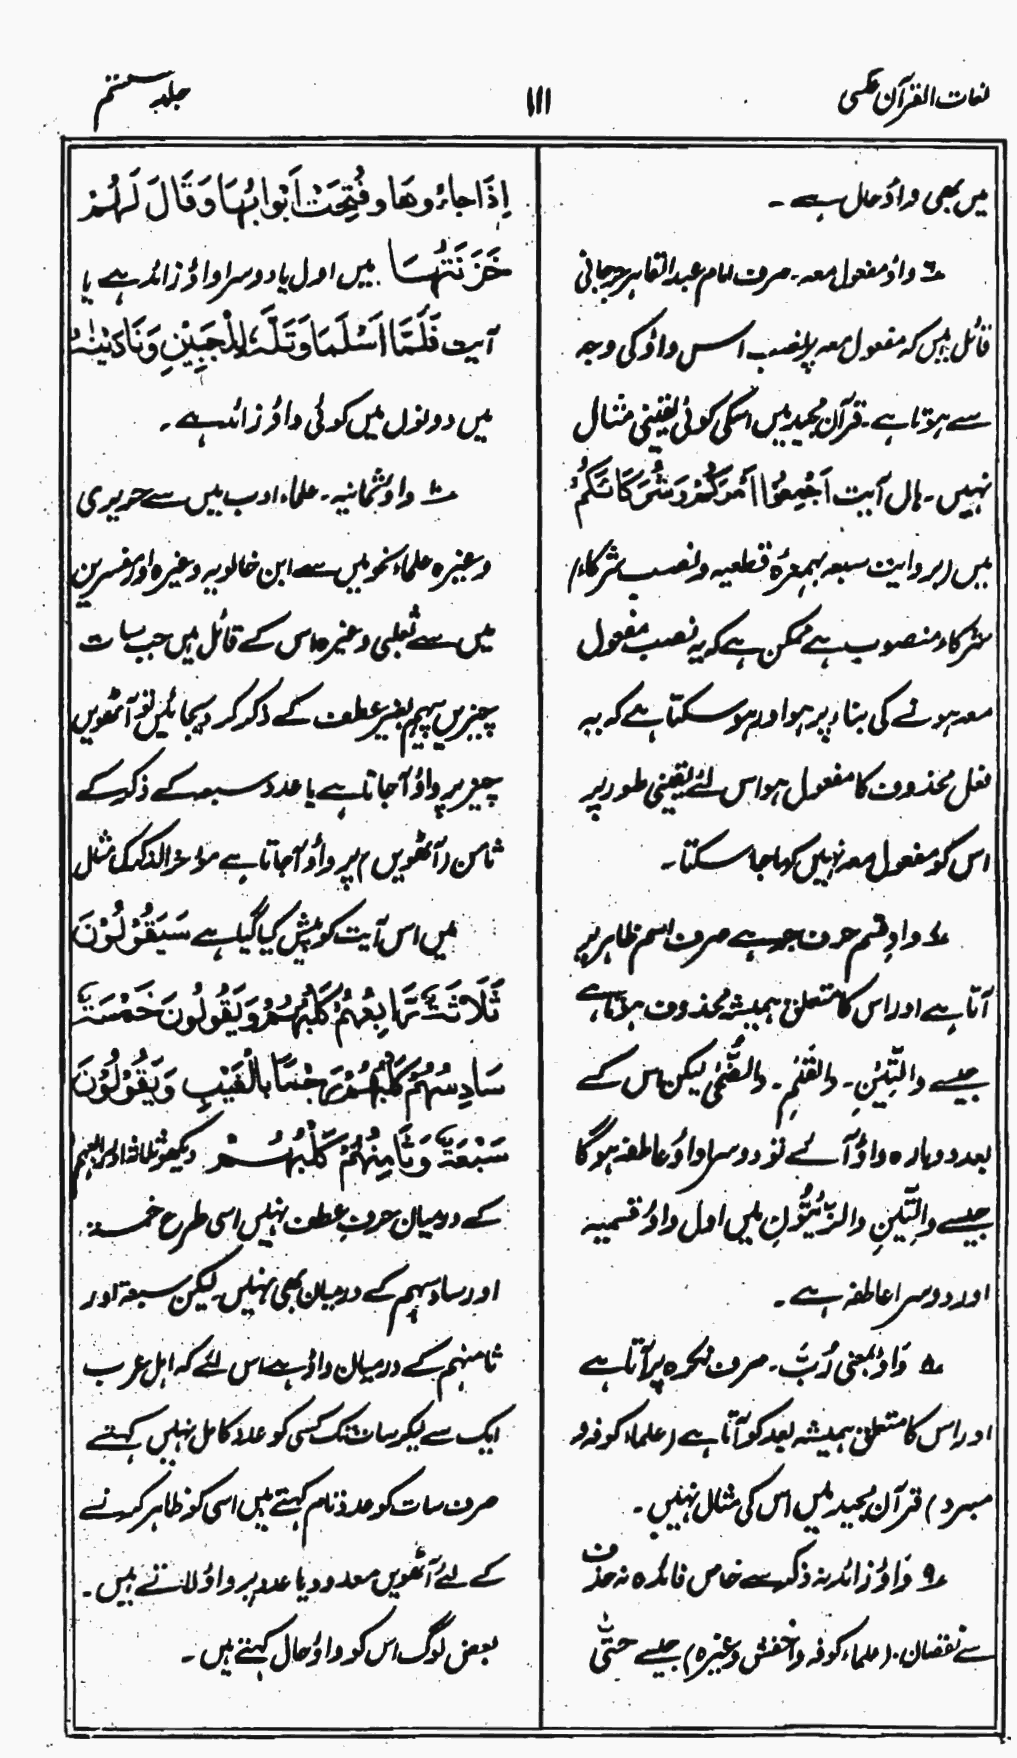 لغات القرآن عکسی
۱۱۱
جلد ششم
میں بھی واؤ حال ہے۔
۶ واؤ مفعول معہ۔ صرف امام عبد القاہر جرجانی
قائل ہیں کہ مفعول معہ پر نصب اس واؤ کی وجہ
سے ہوتا ہے۔ قرآن مجید میں اسکی کوئی یقینی مثال
نہیں۔ ہاں آیت اَجْمِعُوْا اَمْرَكُمْ وَشُرَكَاءَكُمْ
میں (بروایت سبعہ بہمزہ قطعیہ و نصب شرکاء)
شرکاء منصوب ہے ممکن ہے کہ یہ نصب مفعول
معہ ہونے کی بناء پر ہو اور ہو سکتا ہے کہ یہ
فعل محذوف کا مفعول ہو اس لئے یقینی طور پر
اس کو مفعول معہ نہیں کہا جا سکتا۔
۷ واوِ قسم حرف جر ہے صرف اسم ظاہر پر
آتا ہے اور اس کا متعلق ہمیشہ محذوف ہوتا ہے
جیسے والتِّیْنِ۔ والقَلَمِ۔ والضُّحٰی لیکن اس کے
بعد دوبارہ واؤ آئے تو دوسرا واؤ عاطفہ ہوگا
جیسے والتِّیْنِ والزَّیْتُوْنِ میں اول واؤ قسمیہ
اور دوسرا عاطفہ ہے۔
۸ وَاؤ بمعنی رُبَّ۔ صرف نکرہ پر آتا ہے
اور اس کا متعلق ہمیشہ بعد کو آتا ہے (علماء کوفہ و
مبرد) قرآن مجید میں اس کی مثال نہیں۔
۹ وَاؤ زائد نہ ذکر سے خاص فائدہ نہ حذف
سے نقصان۔ (علماء کوفہ واخفش وغیرہ) جیسے حتّٰی
اِذَا جَاءُوهَا وَفُتِحَتْ اَبْوَابُهَا وَقَالَ لَهُمْ
خَزَنَتُهَا میں اول یا دوسرا واؤ زائد ہے یا
آیت فَلَمَّا اَسْلَمَا وَتَلَّهٗ لِلْجَبِیْنِ وَنَادَیْنٰهُ
میں دونوں میں کوئی واؤ زائد ہے۔
۱۰ واؤ ثمانیہ۔ علماء ادب میں سے حریری
وغیرہ علماء نحو میں سے ابن خالویہ وغیرہ اور مفسرین
میں سے ثعلبی وغیرہ اس کے قائل ہیں جب سات
چیزیں پیہم بغیر عطف کے ذکر کر دیجائیں تو آٹھویں
چیز پر واؤ آجاتا ہے یا عدد سبعہ کے ذکر کے
ثامن (آٹھویں) پر واؤ آجاتا ہے مؤخر الذکر کی مثال
میں اس آیت کو پیش کیا گیا ہے سَیَقُوْلُوْنَ
ثَلَاثَةٌ رَّابِعُهُمْ كَلْبُهُمْ وَیَقُولُونَ خَمْسَةٌ
سَادِسُهُمْ كَلْبُهُمْ رَجْمًا بِالْغَیْبِ وَیَقُوْلُوْنَ
سَبْعَةٌ وَثَامِنُهُمْ كَلْبُهُمْ دیکھو ثلاثۃ اور رابعہم
کے درمیان حرفِ عطف نہیں اسی طرح خمسۃ
اور سادسہم کے درمیان بھی نہیں۔ لیکن سبعۃ اور
ثامنہم کے درمیان واؤ ہے اس لئے کہ اہل عرب
ایک سے لیکر سات تک کسی کو عدد کامل نہیں کہتے
صرف سات کو عدد تام کہتے ہیں اسی کو ظاہر کرنے
کے لئے آٹھویں معدود یا عدد پر واؤ لاتے ہیں۔
بعض لوگ اس کو واؤ حال کہتے ہیں۔